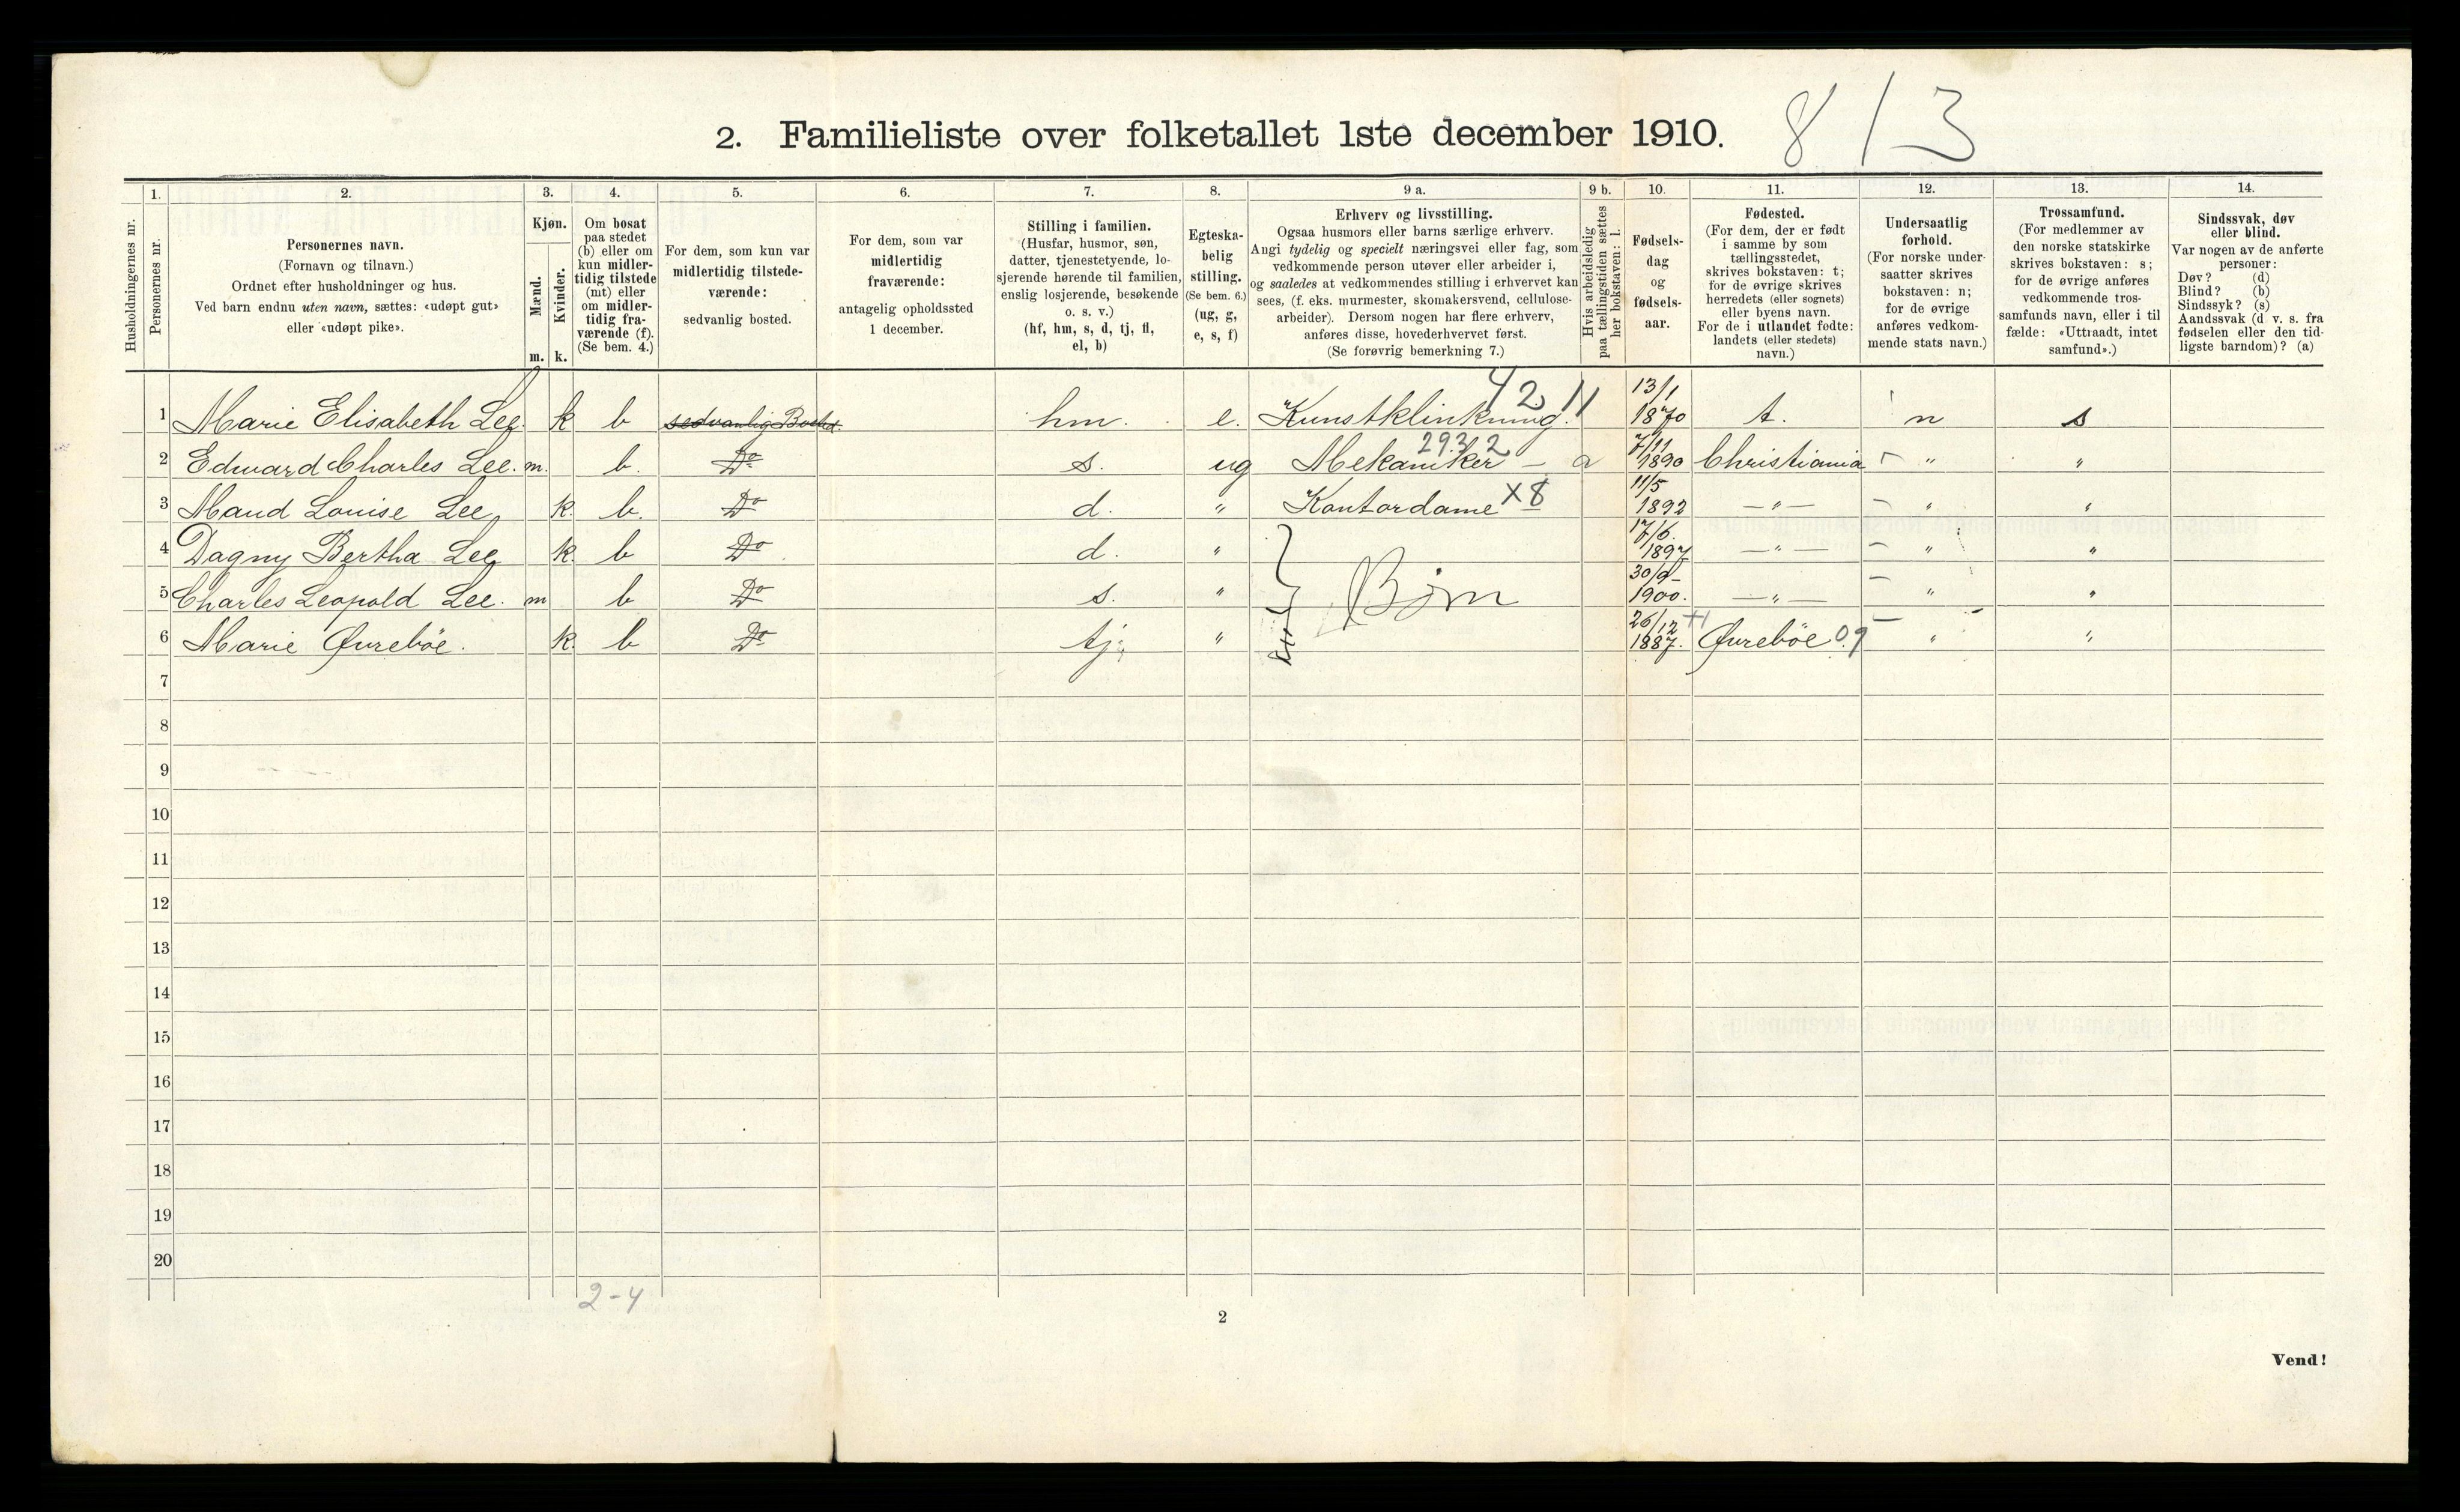 8 1 3
2. Familieliste over folketallet 1ste december 1910.
1. 2. 3. 4. 5. 6. 7. 8. 9 a. 9 b. 10. 11. 12. 13. 14.
Husholdningernes nr.
Personernes nr.
Personernes navn.
(Fornavn og tilnavn.)
Ordnet efter husholdninger og hus.
Ved barn endnu uten navn, sættes: «udøpt gut»
eller «udøpt pike».
Kjøn.
Mænd.
Kvinder.
m. k.
Om bosat
paa stedet
(b) eller om
kun midler-
tidig tilstede
(mt) eller
om midler-
tidig fra-
værende (f).
(Se bem. 4.)
For dem, som kun var
midlertidig tilstede-
værende:
sedvanlig bosted.
For dem, som var
midlertidig
fraværende:
antagelig opholdssted
1 december.
Stilling i familien.
(Husfar, husmor, søn,
datter, tjenestetyende, lo-
sjerende hørende til familien,
enslig losjerende, besøkende
o. s. v.)
(hf, hm, s, d, tj, fl,
el, b)
Egteska-
belig
stilling.
(Se bem. 6.)
(ug, g,
e, s, f)
Erhverv og livsstilling.
Ogsaa husmors eller barns særlige erhverv.
Angi tydelig og specielt næringsvei eller fag, som
vedkommende person utøver eller arbeider i,
og saaledes at vedkommendes stilling i erhvervet kan
sees, (f. eks. murmester, skomakersvend, cellulose-
arbeider). Dersom nogen har flere erhverv,
anføres disse, hovederhvervet først.
(Se forøvrig bemerkning 7.)
Hvis arbeidsledig
paa tællingstiden sættes
her bokstaven: l.
Fødsels-
dag
og
fødsels-
aar.
Fødested.
(For dem, der er født
i samme by som
tællingsstedet,
skrives bokstaven: t;
for de øvrige skrives
herredets (eller sognets)
eller byens navn.
For de i utlandet fødte:
landets (eller stedets)
navn.)
Undersaatlig
forhold.
(For norske under-
saatter skrives
bokstaven: n;
for de øvrige
anføres vedkom-
mende stats navn.)
Trossamfund.
(For medlemmer av
den norske statskirke
skrives bokstaven: s;
for de øvrige anføres
vedkommende tros-
samfunds navn, eller i til
fælde: «Uttraadt, intet
samfund».)
Sindssvak, døv
eller blind.
Var nogen av de anførte
personer:
Døv? (d)
Blind? (b)
Sindssyk? (s)
Aandssvak (d v. s. fra
fødselen eller den tid-
ligste barndom)? (a)
42 11
1 Marie Elisabeth Lee k b sedvanlig Bosted. hm. e. Kunstklinkning. 13/1 1870 t. n s
293 2
2 Edward Charles Lee. m. b. Do s. ug Mekaniker – a 7/11 1890 Christiania – " "
3 Maud Louise Lee k. b. Do d. " Kontordame X8 11/5 1892 —"— – " "
4 Dagny Bertha Lee k. b Do d. " 17/6 1897 —"— – " "
5 Charles Leopold Lee. m b Do s. " Börn 30/9 – 1900. —"— – " "
6 Marie Øvreböe. k. b Do tj. " 26/12 1887. Øvreböe 09 – " "
7
8
9
10
11
12
13
14
15
16
17
18
19
20
2-4
2
Vend!